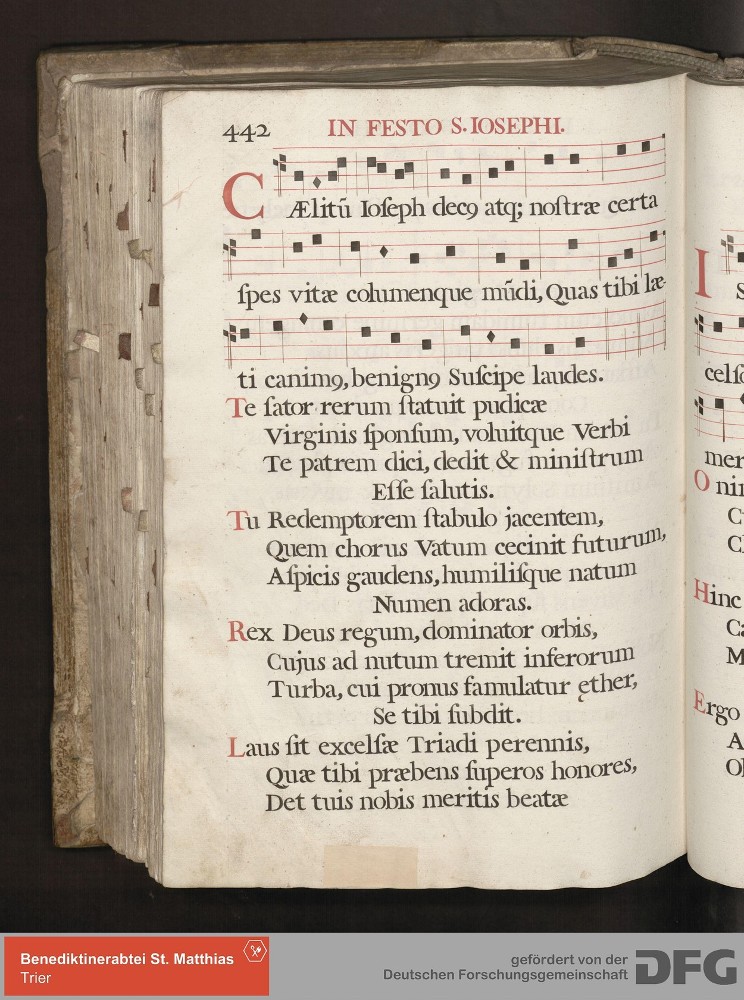 442 IN FESTO S. IOSEPHI.
CÆlitũ Ioſeph decꝯ atq; noſtræ certa
ſpes vitæ columenque mũdi, Quas tibi læ-
ti canimꝯ, benignꝯ Suſcipe laudes.
Te ſator rerum ſtatuit pudicæ
Virginis ſponſum, voluitque Verbi
Te patrem dici, dedit & miniſtrum
Eſſe ſalutis.
Tu Redemptorem ſtabulo jacentem,
Quem chorus Vatum cecinit futurum,
Aſpicis gaudens, humiliſque natum
Numen adoras.
Rex Deus regum, dominator orbis,
Cujus ad nutum tremit inferorum
Turba, cui pronus famulatur ęther,
Se tibi ſubdit.
Laus ſit excelſæ Triadi perennis,
Quæ tibi præbens ſuperos honores,
Det tuis nobis meritis beatæ
I
S
celſ
mer
O ni
C
Hinc
M
Ergo
A
Benediktinerabtei St. Matthias
Trier
gefördert von der
Deutschen Forschungsgemeinschaft
DFG